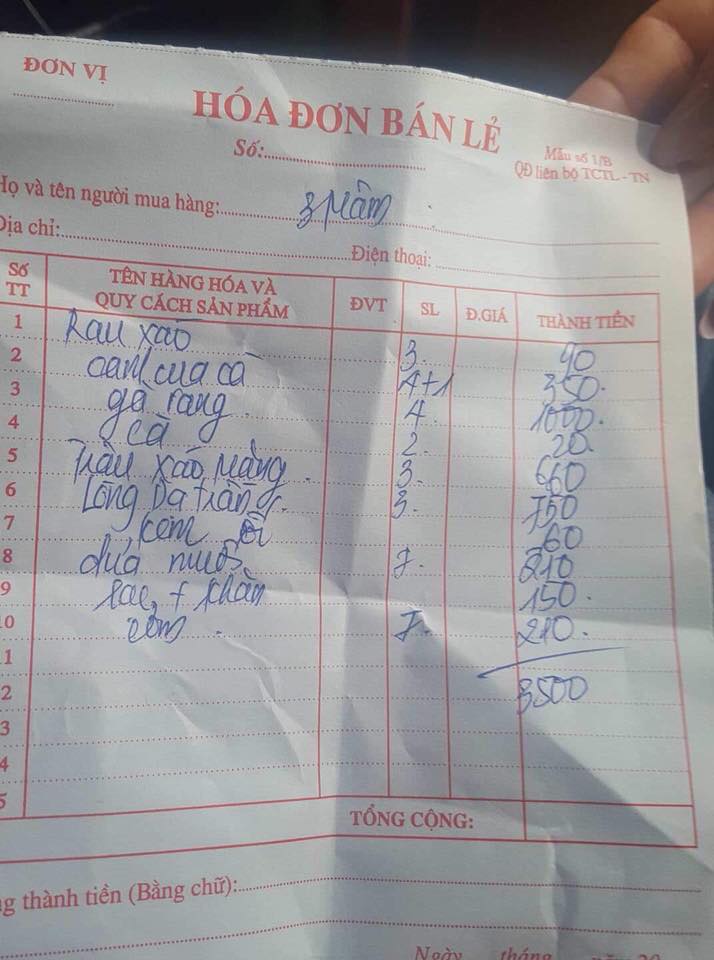 ĐƠN VỊ
HÓA ĐƠN BÁN LẺ
Số:
Mẫu số 1/B
QĐ liên bộ TCTL - TN
Họ và tên người mua hàng: 3 Mâm
Địa chỉ: Điện thoại:
Số TT TÊN HÀNG HÓA VÀ QUY CÁCH SẢN PHẨM ĐVT SL Đ.GIÁ THÀNH TIỀN
1 Rau xào 3. 90
2 canh cua cà 4+1 350.
3 gà rang 4. 1000.
4 cà 2. 20.
5 Trâu xào măng. 3. 660
6 Lòng Dạ Tràng. 3. 750
7 kem 60
8 dứa nước 7. 210
9 lạc + khăn 150.
0 cơm. 7. 210.
1
2 3500
3
4
5
TỔNG CỘNG:
g thành tiền (Bằng chữ):
Ngày tháng năm 20